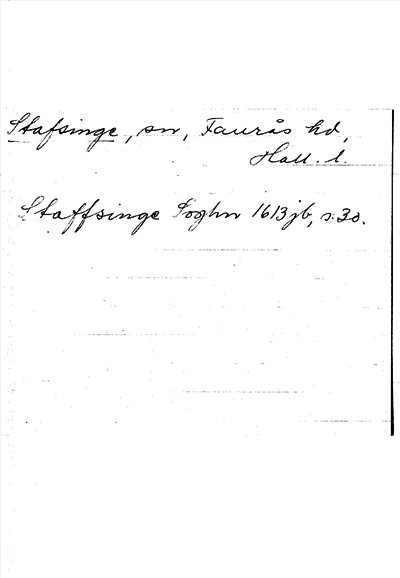 Stafsinge, sn, Faurås hd,
Hall. l.
Staffsinge Soghn 1613 jb, s. 30.